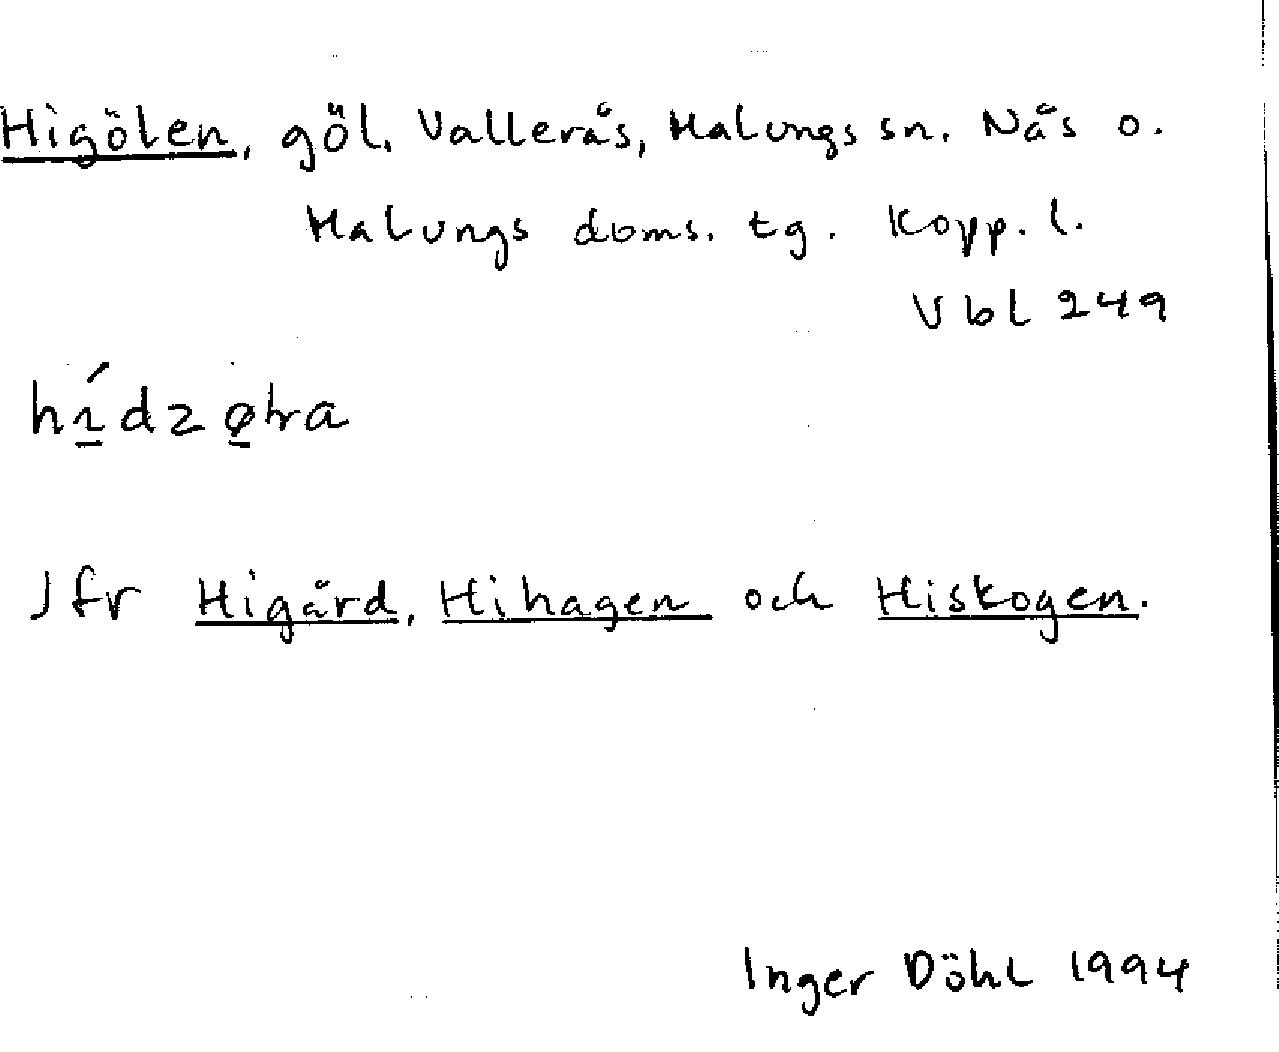 Higölen, göl, Vallerås, Malungs sn. Nås o.
Malungs doms. tg. Kopp. l.
Vbl 249
Jfr Higård, Hihagen och Hiskogen.
Inger Döhl 1994